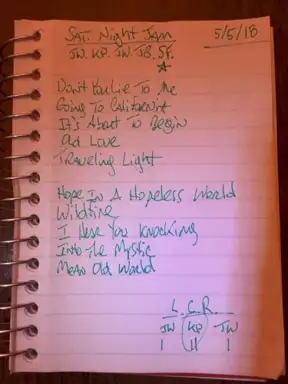 Sat. Night Jam 5/5/18
JW. KP. JW. JB. SF.
Don't You Lie To Me
Going To California
It's About To Begin
Old Love
Traveling Light
Hope In A Hopeless World
Wildfire
I Hear You Knocking
Into The Mystic
Mean Old World
L. C. R.
JW KP JW
I II I